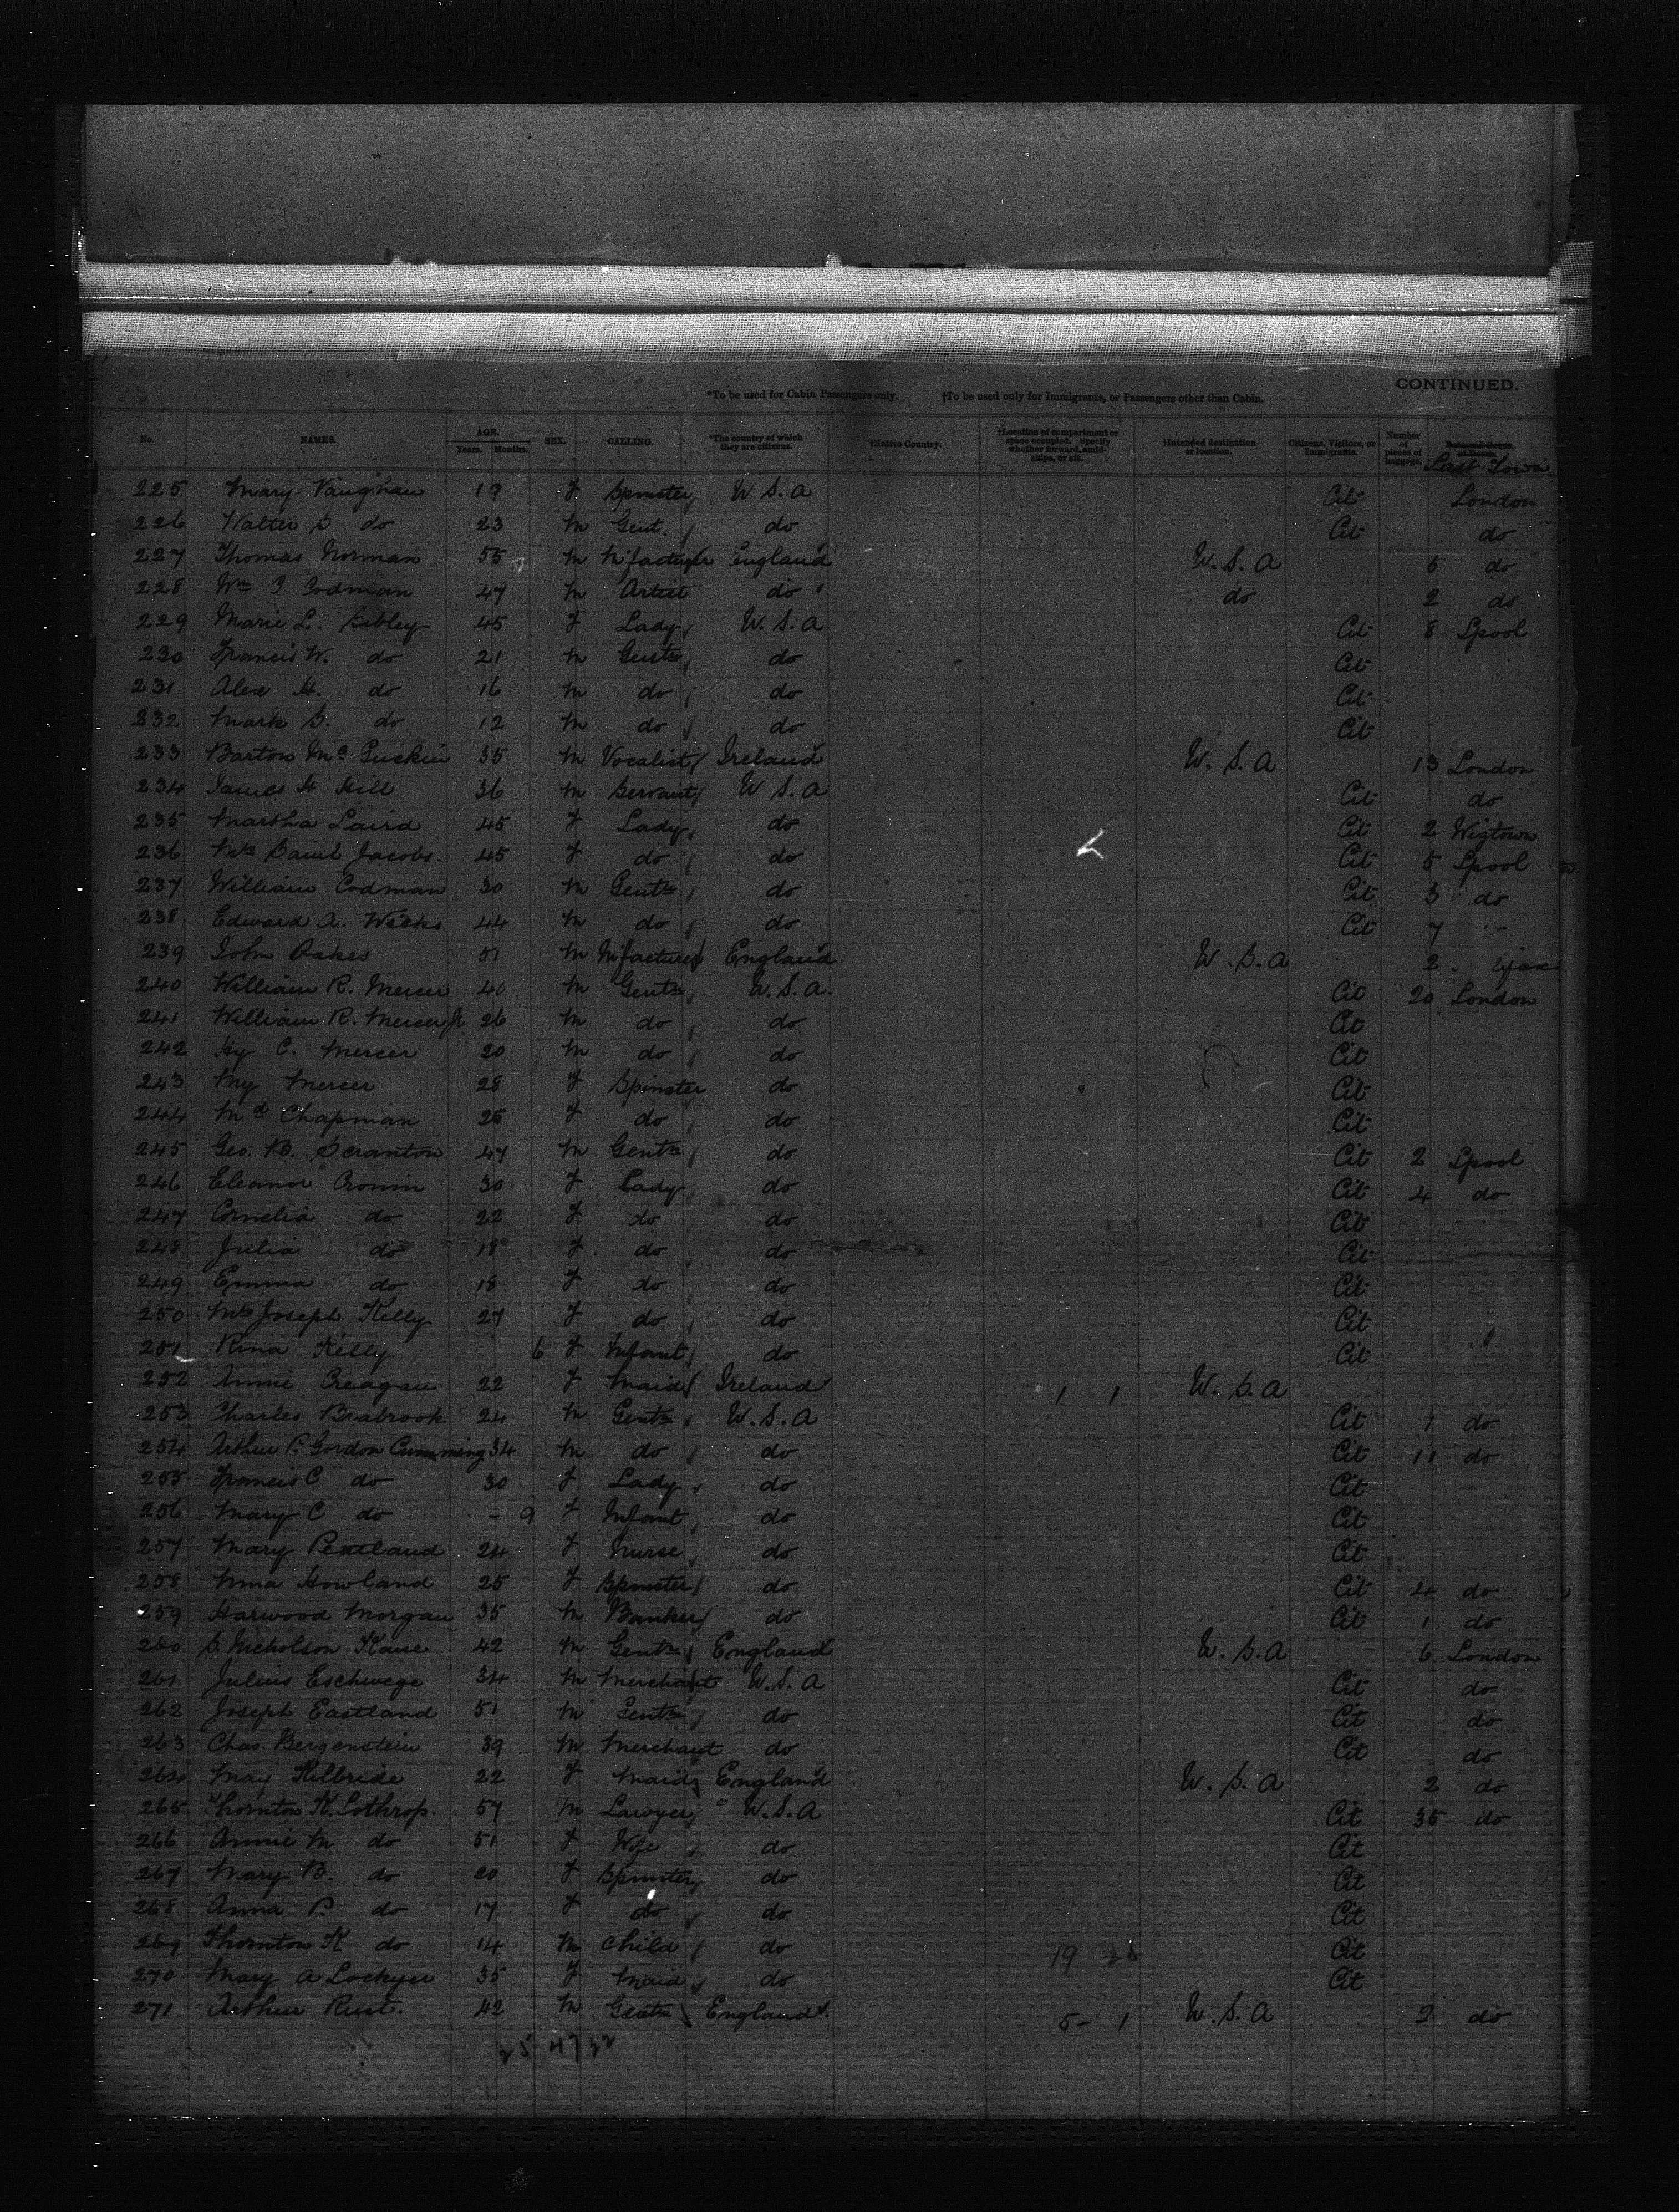 CONTINUED.
*To be used for Cabin Passengers only. †To be used only for Immigrants, or Passengers other than Cabin.
No. NAMES. AGE. Years. Months. SEX. CALLING. *The country of which they are citizens. †Native Country. †Location of compartment or space occupied. Specify whether forward, amidships, or aft. †Intended destination or location. Citizens, Visitors, or Immigrants. Number of pieces of baggage. Last Town
225 Mary Vaughan 19 F Spinster U S. A Cit London
226 Walter S do 23 M Gent. do Cit do
227 Thomas Norman 55 M M'facturer England U.S.A 5 do
228 Wm Codman 47 M Artist do do 2 do
229 Marie L. Sibley 45 F Lady U.S.A Cit 8 Lpool
230 Francis W. do 21 M Gentn do Cit
231 Alex H. do 16 M do do Cit
232 Mark S. do 12 M do do Cit
233 Barton Mc Guckin 35 M Vocalist Ireland U.S.A 13 London
234 James H Hill 36 M Servant U S.A Cit do
235 Martha Laird 45 F Lady do Cit 2 Wigtown
236 Mrs Saml Jacobs. 45 F do do Cit 5 Lpool
237 William Codman 30 M Gentn do Cit 3 do
238 Edward A. Weeks 44 M do do Cit 7 "
239 John Oakes 51 M M'facturer England U.S.A 2
240 William R. Mercer 40 M Gentn U.S.A. Cit 20 London
241 William R. Mercer Jr 26 M do do Cit
242 Hy C. Mercer 20 M do do Cit
243 My Mercer 28 F Spinster do Cit
244 Md Chapman 25 F do do Cit
245 Geo. B. Scranton 47 M Gentn do Cit 2 Lpool
246 Eleanor Cronin 30 F Lady do Cit 4 do
247 Cornelia do 22 F do do Cit
248 Julia do 18 F do do Cit
249 Emma do 18 F do do Cit
250 Mrs Joseph Kelly 27 F do do Cit
251 Rina Kelly 6 F Infant do Cit
252 Annie Creagan 22 F Maid Ireland 1 1 U.S.A
253 Charles Brabrook 24 M Gentn U.S.A Cit 1 do
254 Arthur P. Gordon Cumming 34 M do do Cit 11 do
255 Francis C do 30 F Lady do Cit
256 Mary C do - 9 F Infant do Cit
257 Mary Pentland 24 F Nurse do Cit
258 Howland 25 F Spinster do Cit 4 do
259 Harwood Morgan 35 M Banker do Cit 1 do
260 S. Nicholson Kane 42 M Gentn England U.S.A 6 London
261 Julius Eschwege 34 M Merchant U.S.A Cit do
262 Joseph Eastland 51 M Gentn do Cit do
263 Chas. Bergenstein 39 M Merchant do Cit do
264 May Kilbride 22 F Maid England U.S.A 2 do
265 Thornton K. Lothrop. 57 M Lawyer U.S.A Cit 35 do
266 Annie M do 51 F Wife do Cit
267 Mary B. do 20 F Spinster do Cit
268 Anna P. do 17 F do do Cit
269 Thornton K do 14 M Child do 19 Cit
270 Mary A Lockyer 35 F Maid do Cit
271 Arthur Rust. 42 M Gentn England. 5 - 1 U.S.A 2 do